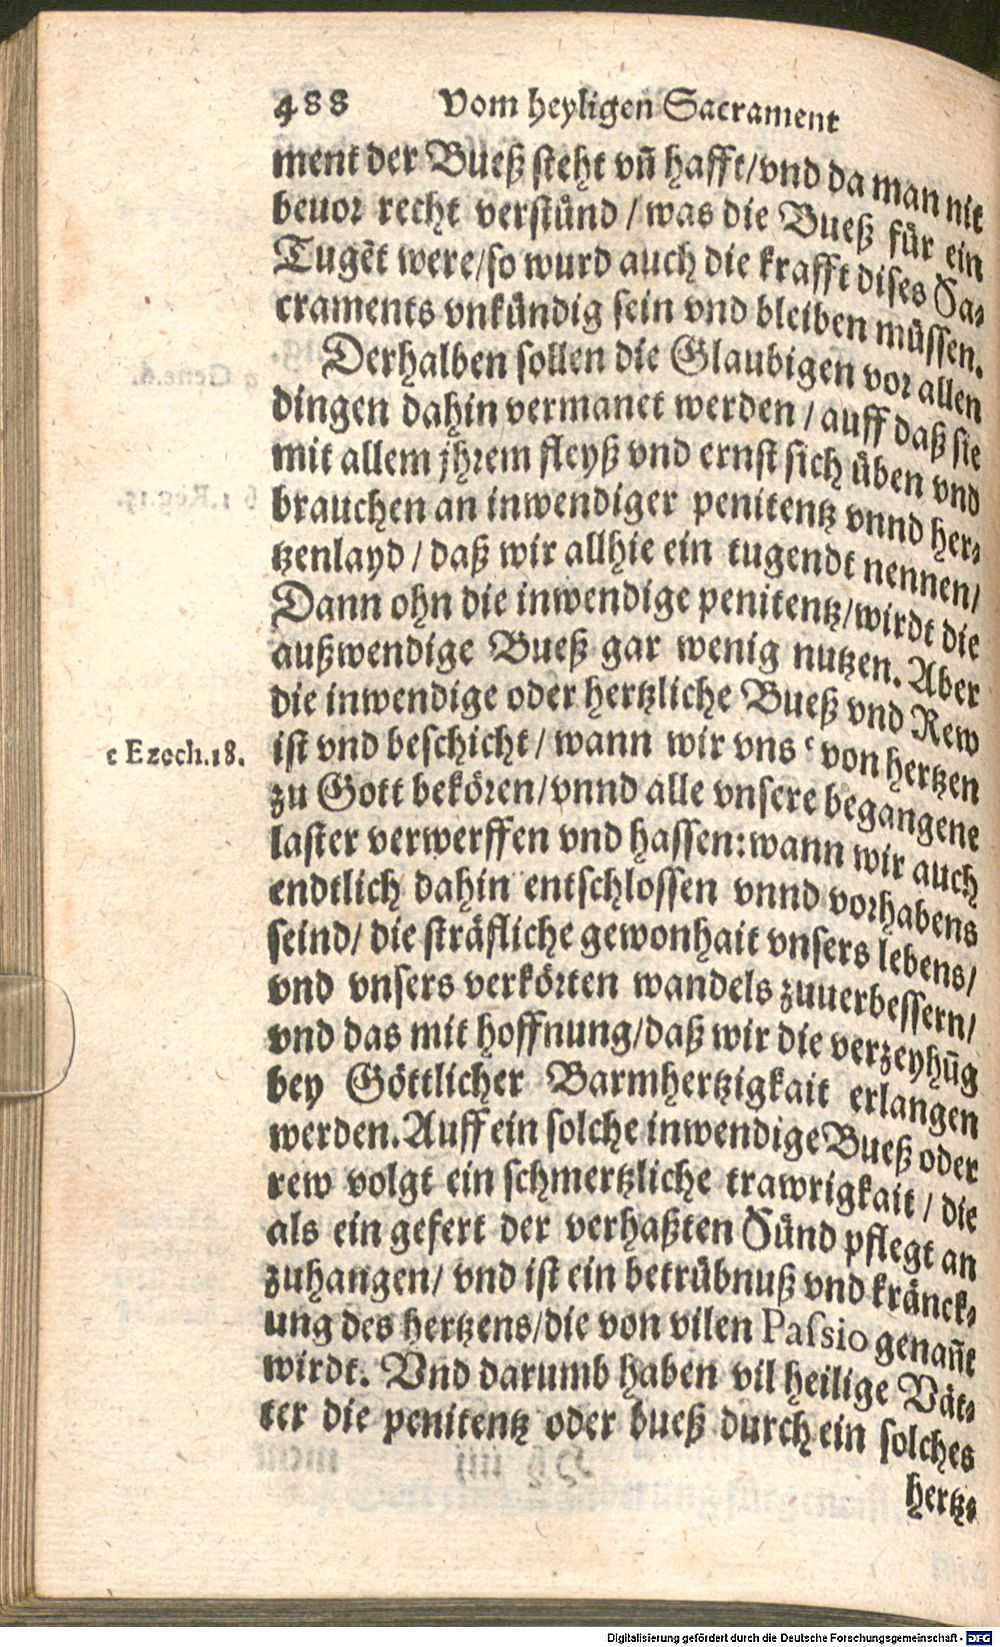 488 Vom heyligen Sacrament
ment der Bueß steht vñ hafft/vnd da man nit
beuor recht verstünd / was die Bueß für ein
Tugēt were/so wurd auch die krafft dises Sa-
craments vnkündig sein vnd bleiben müssen.
Derhalben sollen die Glaubigen vor allen
dingen dahin vermanet werden / auff daß sie
mit allem jhrem fleyß vnd ernst sich üben vnd
brauchen an inwendiger penitentz vnnd her-
tzenlayd / daß wir allhie ein tugendt nennen/
Dann ohn die inwendige penitentz/wirdt die
außwendige Bueß gar wenig nutzen. Aber
die inwendige oder hertzliche Bueß vnd Rew
c Ezech.18. ist vnd beschicht / wann wir vns c von hertzen
zu Gott bekören/vnnd alle vnsere begangene
laster verwerffen vnd hassen: wann wir auch
endtlich dahin entschlossen vnnd vorhabens
seind/ die sträfliche gewonhait vnsers lebens/
vnd vnsers verkörten wandels zuuerbessern/
vnd das mit hoffnung/daß wir die verzeyhūg
bey Göttlicher Barmhertzigkait erlangen
werden. Auff ein solche inwendige Bueß oder
rew volgt ein schmertzliche trawrigkait / die
als ein gefert der verhaßten Sünd pflegt an
zuhangen/ vnd ist ein betrübnuß vnd kränck-
ung des hertzens/die von vilen Passio genañt
wirdt. Vnd darumb haben vil heilige Vät-
ter die penitentz oder bueß durch ein solches
hertz-
Digitalisierung gefördert durch die Deutsche Forschungsgemeinschaft - DFG